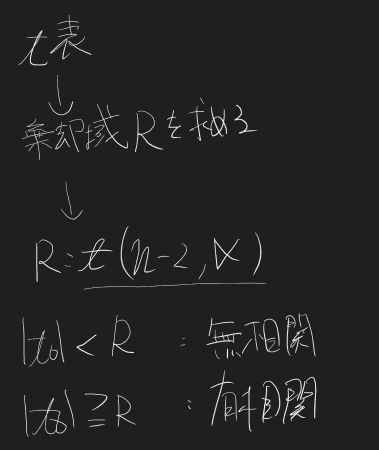 t表
↓
棄却域Rを求める
↓
R:t(n-2,α)
|t₀| < R : 無相関
|t₀| ≧ R : 有相関